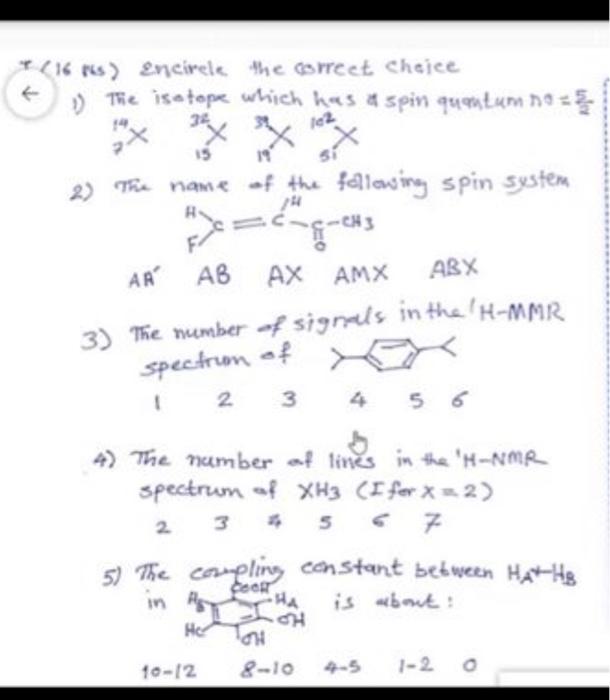 I (16 pts) Encircle the correct choice
1) The isotope which has a spin quantum no = 5/2
14 7 X 32 15 X 39 19 X 102 51 X
2) The name of the following spin system
H F C = C H - C O - CH3
AA' AB AX AMX ABX
3) The number of signals in the 1H-NMR
spectrum of
1 2 3 4 5 6
4) The number of lines in the 'H-NMR
spectrum of XH3 (I for X = 2)
2 3 4 5 6 7
5) The coupling constant between HA + HB
COOH
in HB HA is about :
OH
Hc OH
10-12 8-10 4-5 1-2 0